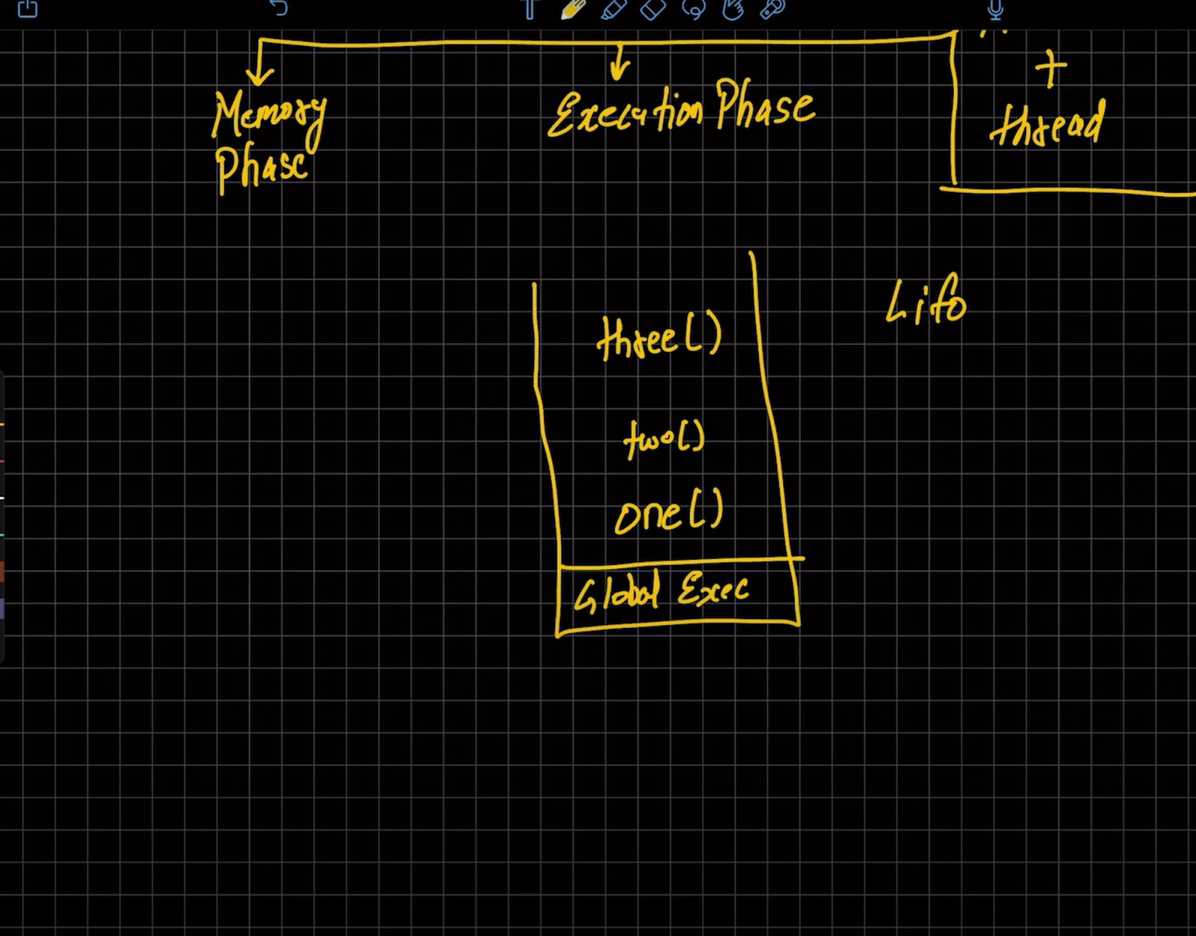 +
Memory
Phase
Execution Phase
thread
Lifo
three()
two()
one()
Global Exec